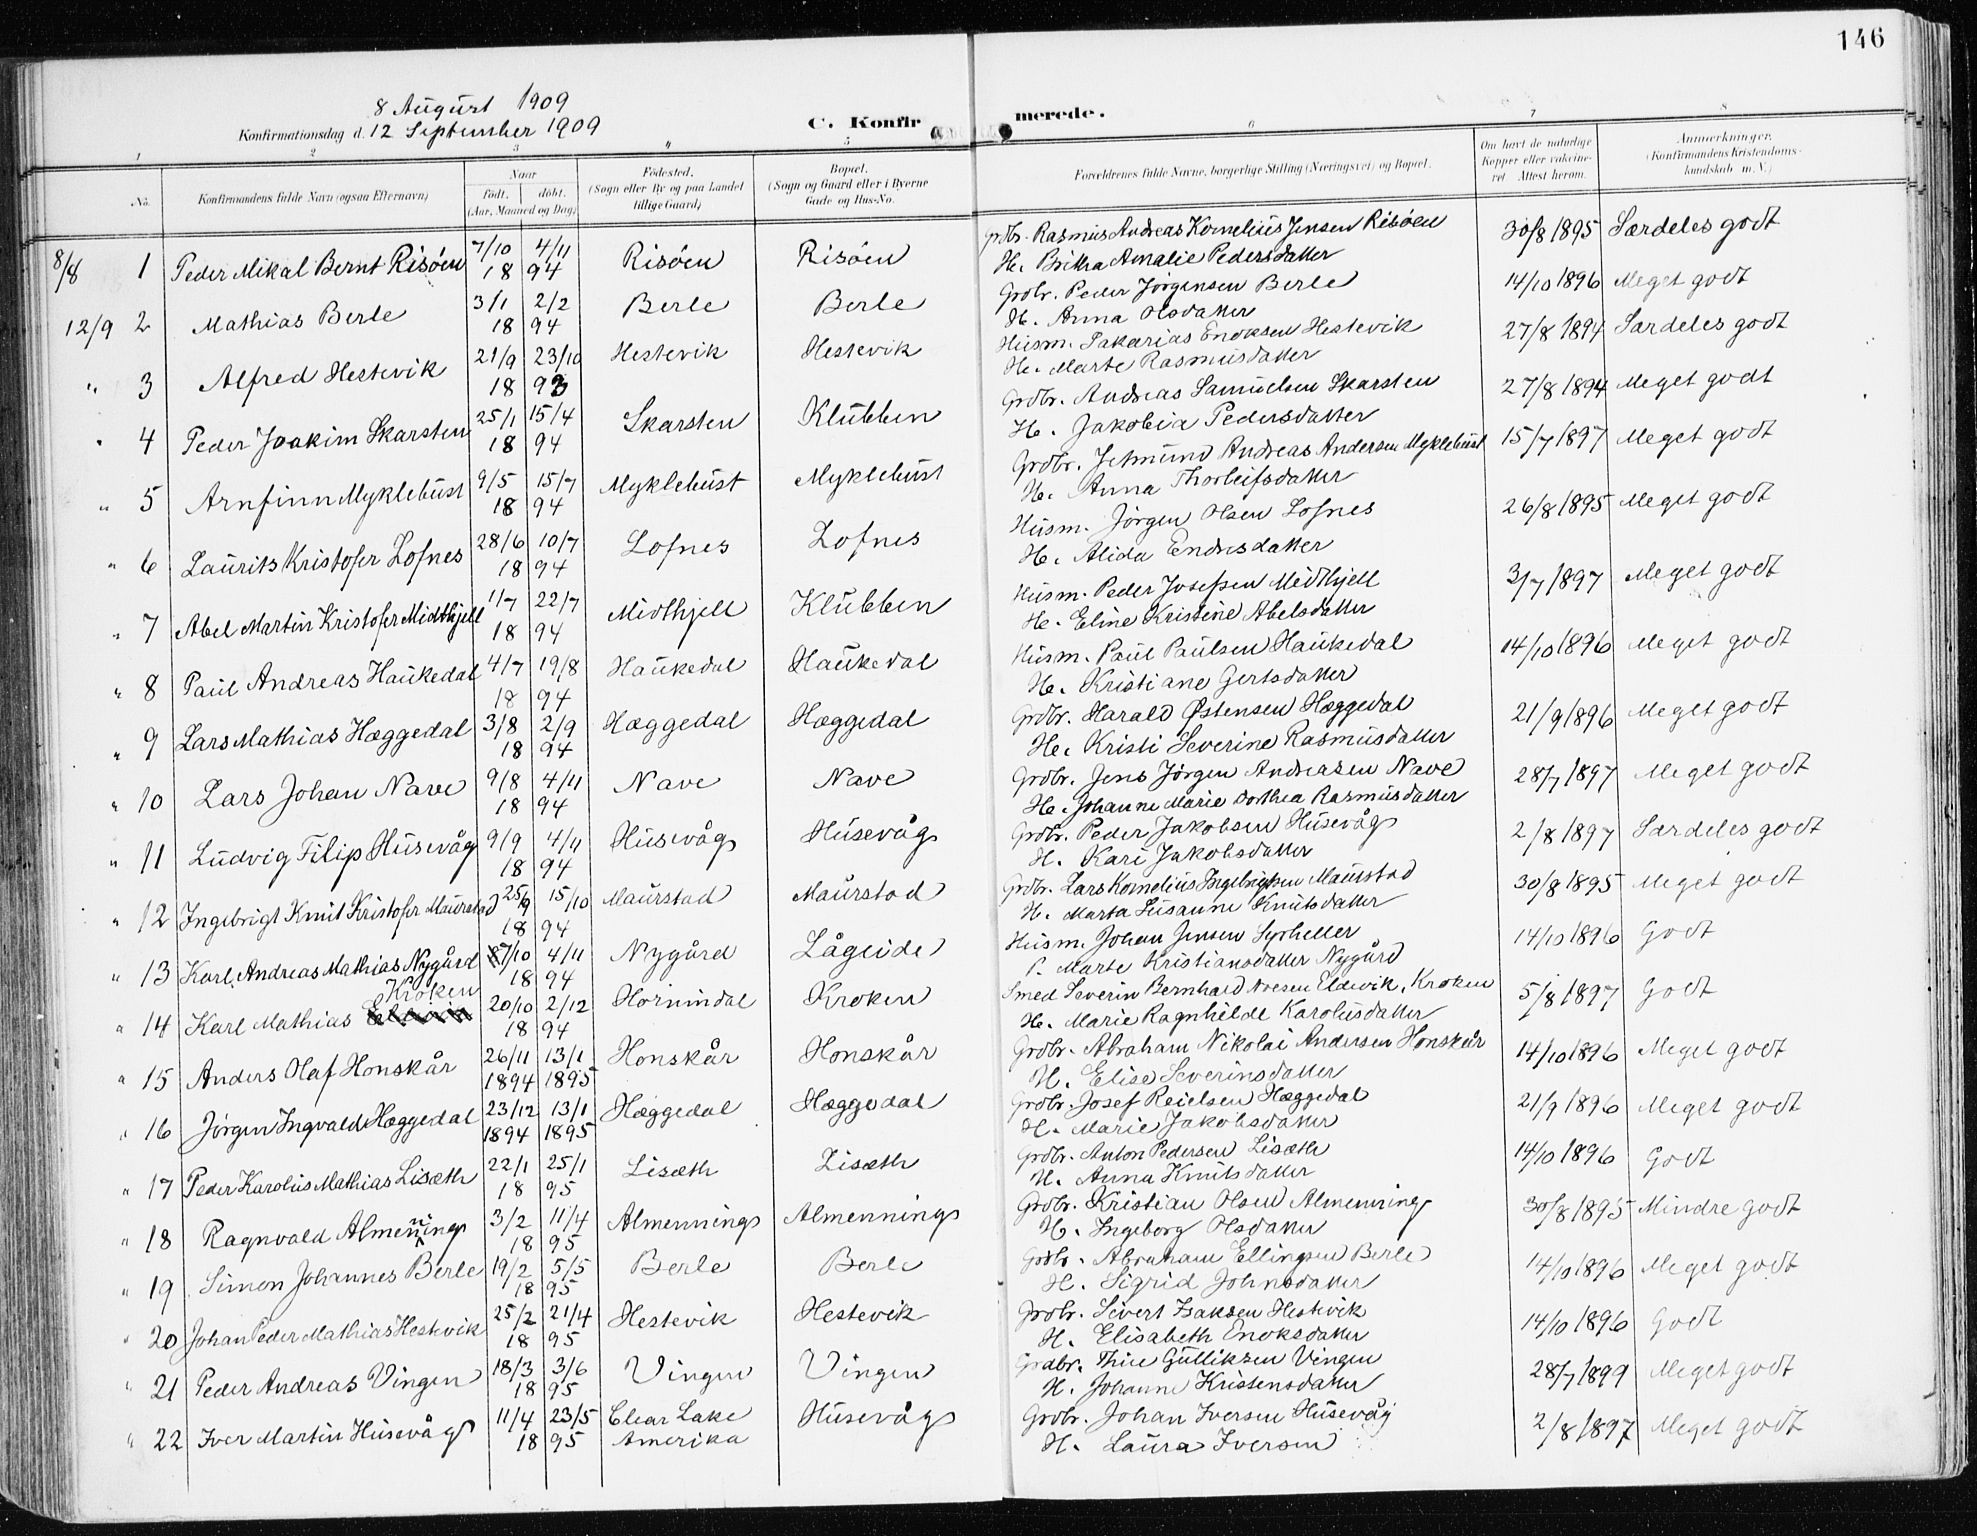 146
8 August 1909
Konfirmationsdag d. 12 September 1909
C. Konfirmerede.
1 2 3 4 5 6 7 8
No. Konfirmandens fulde Navn (ogsaa Efternavn) Naar født. døbt. (Aar, Maaned og Dag) Fødested. (Sogn eller By og paa Landet tillige Gaard) Bopæl. (Sogn og Gaard eller i Byerne Gade og Hus-No. Forældrenes fulde Navne, borgerlige Stilling (Næringsvei) og Bopæl. Om havt de naturlige Kopper eller vakcineret. Attest herom. Anmærkninger. (Konfirmandens Kristendomskundskab m. V.)
8/8 1 Peder Mikal Bernt Risøen 7/10 4/11 Risøen Risøen Grdbr. Rasmus Andreas Kornelius Jensen Risøen 30/8 1895 Særdeles godt
18 94 H. Britha Amalie Pedersdatter
12/9 2 Mathias Berle 3/1 2/2 Berle Berle Grdbr. Peder Jørgensen Berle 14/10 1896 Meget godt
18 94 H. Anna Olsdatter
" 3 Alfred Hestevik 21/9 23/10 Hestevik Hestevik Husm. Sakarias Enoksen Hestevik 27/8 1894 Særdeles godt
18 93 H. Marte Rasmusdatter
" 4 Peder Joakim Skarsten 25/1 15/4 Skarsten Klubben Grdbr. Andreas Samuelsen Skarsten 27/8 1894 Meget godt
18 94 H. Jakobia Pedersdatter
" 5 Arnfinn Myklebust 9/5 15/7 Myklebust Myklebust Grdbr. Jetmund Andreas Andersen Myklebust 15/7 1897 Meget godt
18 94 H. Anna Thorleifsdatter
" 6 Laurits Kristofer Lofnes 28/6 10/7 Lofnes Lofnes Husm. Jørgen Olsen Lofnes 26/8 1895 Meget godt
18 94 H. Alida Endresdatter
" 7 Abel Martin Kristofer Midthjell 1/7 22/7 Midthjell Klubben Husm. Peder Josefsen Midthjell 3/7 1897 Meget godt
18 94 H. Eline Kristine Abelsdatter
" 8 Paul Andreas Haukedal 4/7 19/8 Haukedal Haukedal Husm. Paul Paulsen Haukedal 14/10 1896 Meget godt
18 94 H. Kristiane Gertsdatter
" 9 Lars Mathias Hæggedal 3/8 2/9 Hæggedal Hæggedal Grdbr. Harald Østensen Hæggedal 21/9 1896 Meget godt
18 94 H. Kristi Severine Rasmusdatter
" 10 Lars Johan Nave 9/8 4/11 Nave Nave Grdbr. Jens Jørgen Andreasen Nave 28/7 1897 Meget godt
18 94 H. Johanne Marie Dorthea Rasmusdatter
" 11 Ludvig Filip Husevåg 9/9 4/11 Husevåg Husevåg Grdbr. Peder Jakobsen Husevåg 2/8 1897 Særdeles godt
18 94 H. Kari Jakobsdatter
" 12 Ingebrigt Knut Kristofer Maurstad 25/9 15/10 Maurstad Maurstad Grdbr. Lars Kornelius Ingebrigtsen Maurstad 30/8 1895 Meget godt
18 94 H. Marta Susanne Knutsdatter
" 13 Karl Andreas Mathias Nygård 7/10 4/11 Nygård Lågeide Husm. Johan Jensen Syrheller 14/10 1896 Godt
18 94 P. Marte Kristiansdatter Nygård
" 14 Karl Mathias Kroken 20/10 2/12 Hornindal Kroken Smed Severin Bernhard Noesen Eldevik, Kroken 5/8 1897 Godt
18 94 H. Marie Ragnhilde Karolusdatter
" 15 Anders Olaf Honskår 26/11 13/1 Honskår Honskår Grdbr. Abraham Nikolai Andersen Honskår 14/10 1896 Meget godt
1894 1895 H. Elise Severinsdatter
" 16 Jørgen Ingvald Hæggedal 23/12 13/1 Hæggedal Hæggedal Grdbr. Josef Reielsen Hæggedal 21/9 1896 Meget godt
1894 1895 H. Marie Jakobsdatter
" 17 Peder Karolus Mathias Lisæth 22/1 25/1 Lisæth Lisæth Grdbr. Anton Pedersen Lisæth 14/10 1896 Godt
18 95 H. Anna Knutsdatter
" 18 Ragnvald Almenning 3/2 11/4 Almenning Almenning Grdbr. Kristian Olsen Almenning 30/8 1895 Mindre godt
18 95 H. Ingeborg Olsdatter
" 19 Simon Johannes Berle 19/2 5/5 Berle Berle Grdbr. Abraham Ellingsen Berle 14/10 1896 Meget godt
18 95 H. Sigrid Johnsdatter
" 20 Johan Peder Mathias Hestevik 25/2 21/4 Hestevik Hestevik Grdbr. Sivert Isaksen Hestevik 14/10 1896 Godt
18 95 H. Elisabeth Enoksdatter
" 21 Peder Andreas Vingen 18/3 3/6 Vingen Vingen Grdbr. Thue Gulliksen Vingen 28/7 1899 Meget godt
18 95 H. Johanne Kristensdatter
" 22 Iver Martin Husevåg 11/4 23/5 Clear Lake Husevåg Grdbr. Johan Iversen Husevåg 2/8 1897 Meget godt
18 95 Amerika H. Laura Iversen